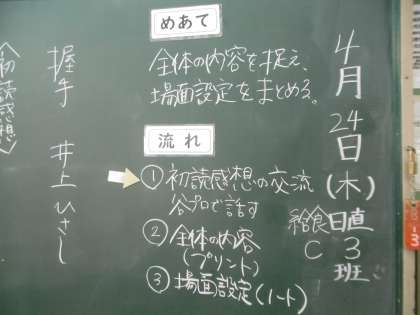 4月24日(木)
日直3班
給食C
めあて
全体の内容を捉え、
場面設定をまとめる。
流れ
①初読感想の交流
谷プロで話す
②全体の内容
(プリント)
③場面設定(ノート)
握手 井上ひさし
〈初読感想〉